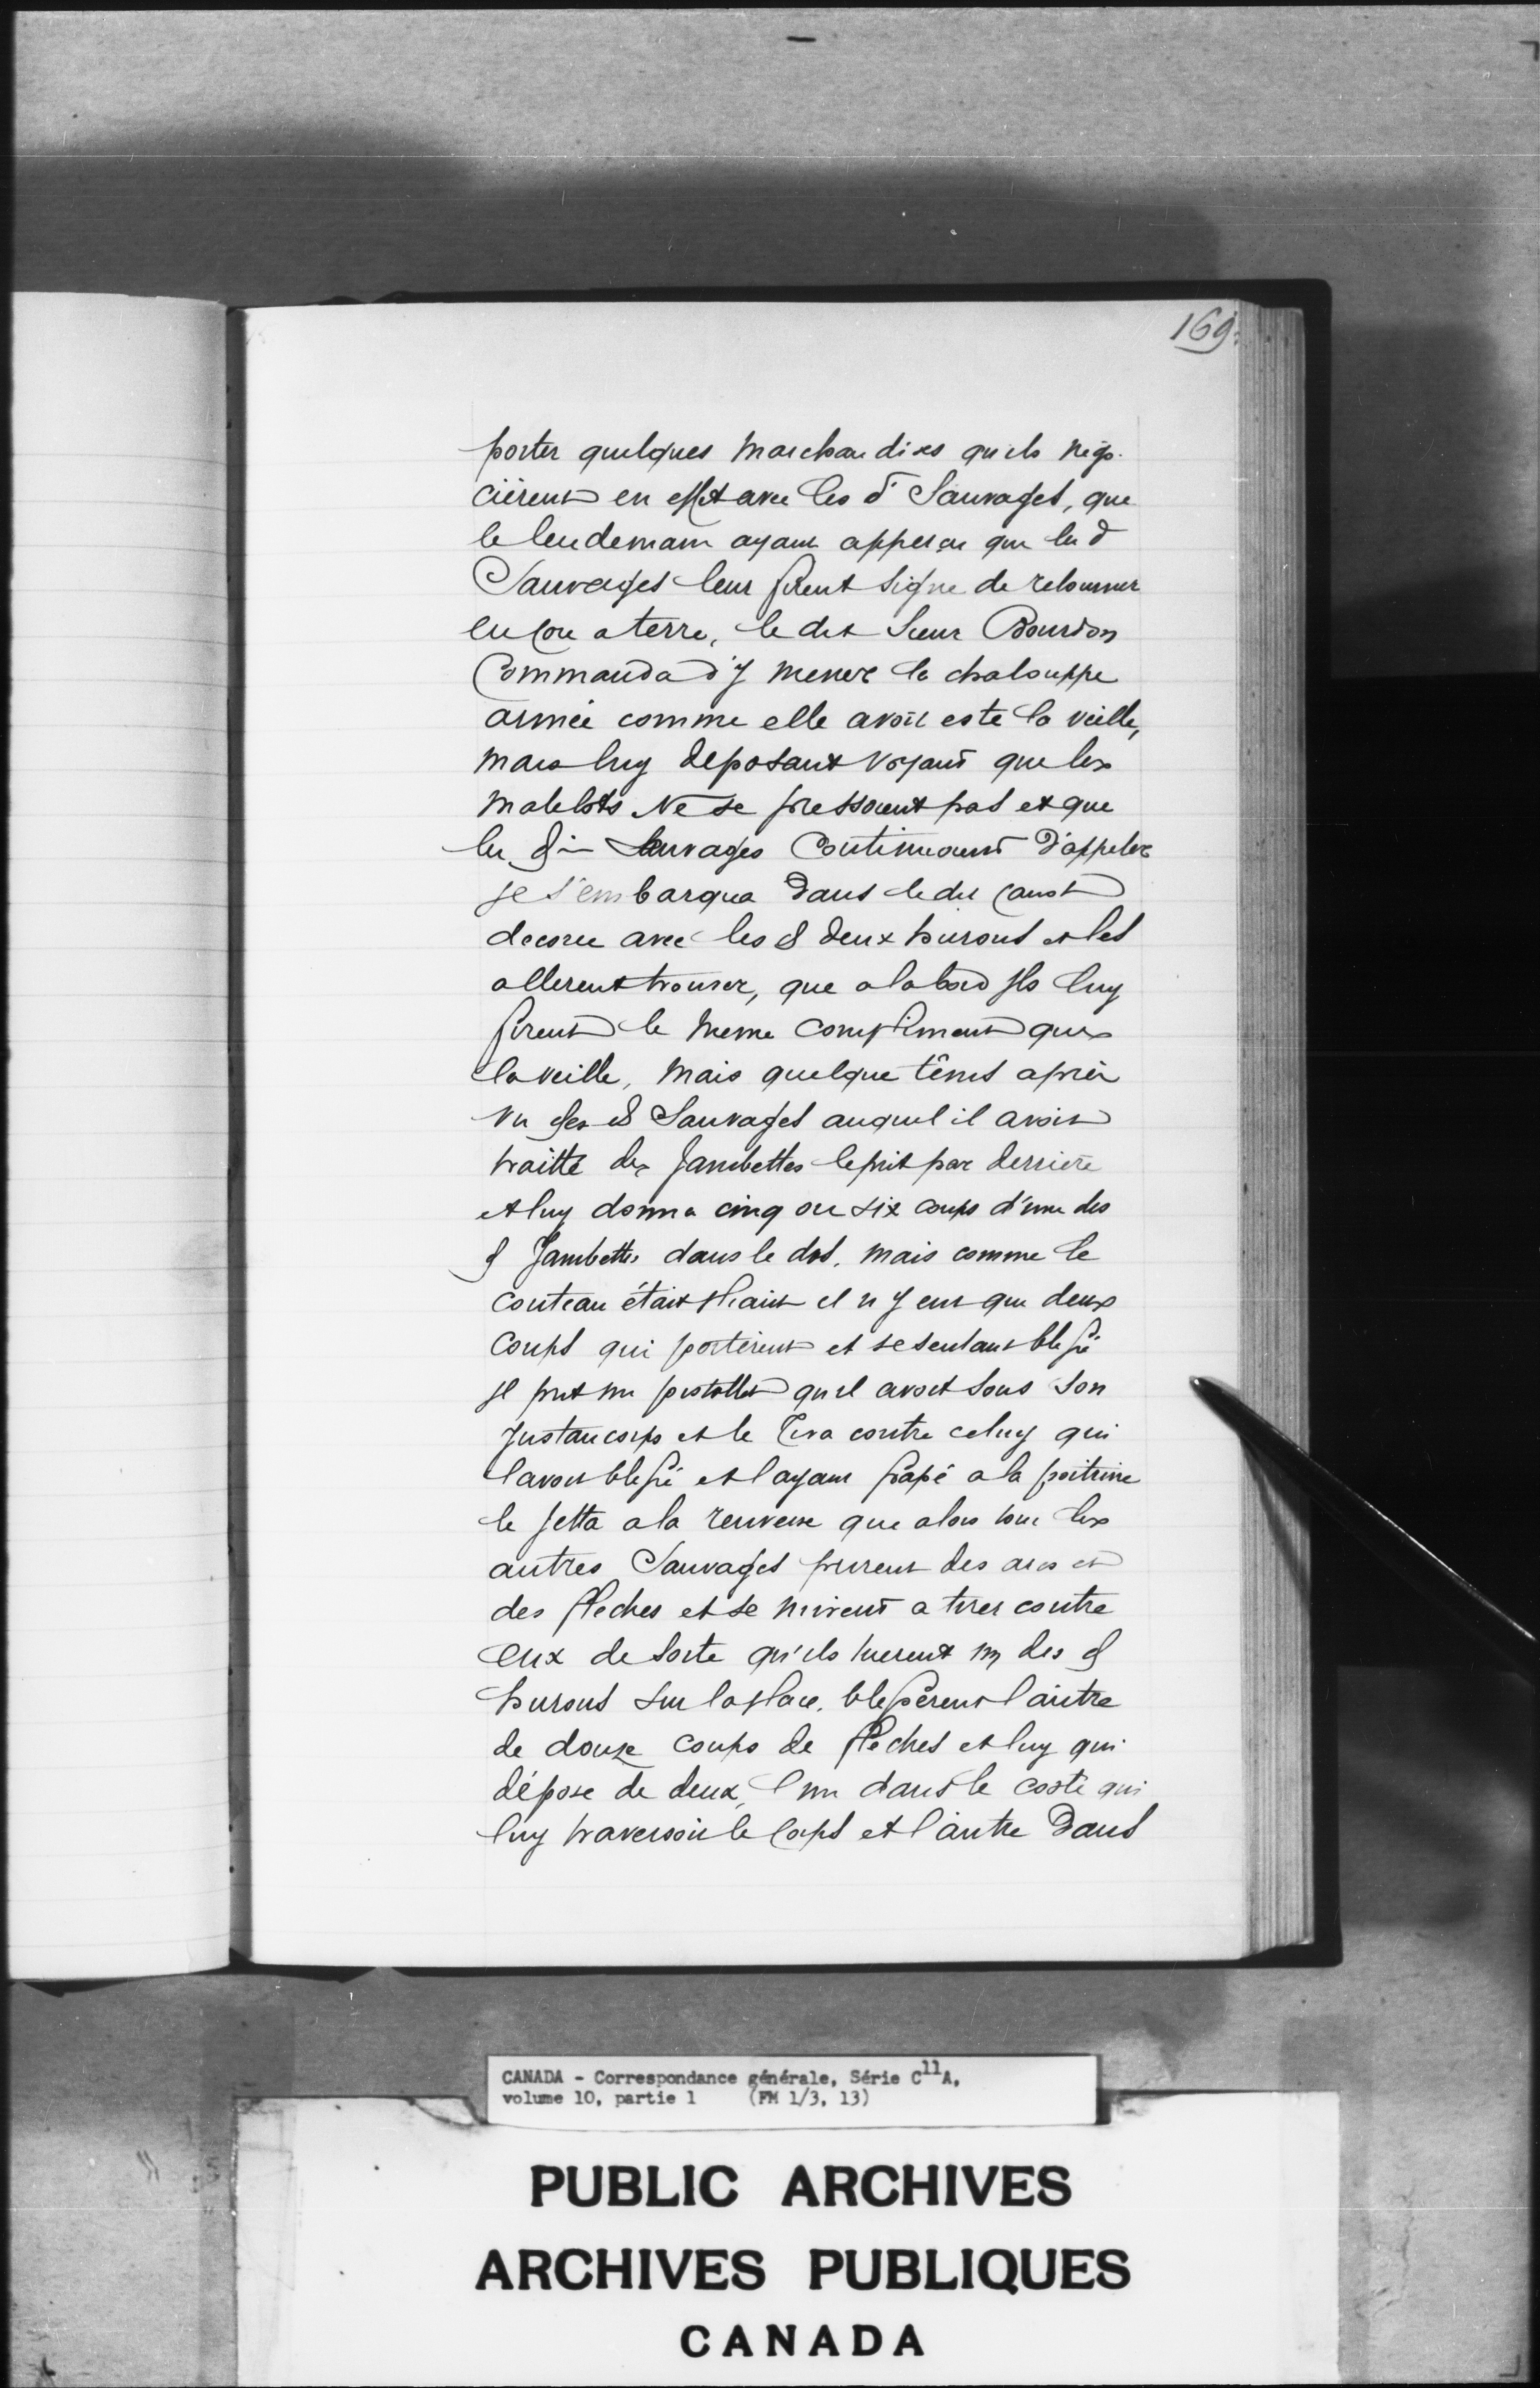 169.
porter quelques marchandises qu'ils négo-
cièrent en effet avec les d. Sauvages, que
le lendemain ayant apperçu que les d
Sauvages leur firent signe de retourner
encore a terre, le dit Sieur Bourdon
Commanda d'y mener la chalouppe
armée comme elle avoit esté la veille,
mais luy deposant voyant que les
matelots Ne se pressoient pas et que
les Sauvages Continuoient d'appeler
Il s'embarqua dans le dit Canot
decorce avec les d deux hurons et les
allerent trouver, que alabord Ils luy
firent le meme compliment que
la veille, mais quelque têms après
un des d Sauvages auquel il avoit
traitté des Jambettes le prit par derriere
et luy donna cinq ou six coups d'une des
d Jambettes dans le dos, mais comme le
couteau était pliant il n'y eut que deux
coups qui porterent et se sentant blessé
Il prit un pistollet qu'il avoit sous son
Justaucorps et le tira contre celuy qui
l'avoit blessé et l'ayant frapé a la poitrine
le jetta a la renverse que alors tous les
autres Sauvages prirent des arcs et
des fleches et se mirent a tirer contre
eux de sorte qu'ils tuerent un des d
hurons sur la place, blesserent l'autre
de douze coups de fleches et luy qui
dépose de deux, l'un dans le costé qui
luy traversoit le corps et l'autre dans
CANADA - Correspondance générale, Série C11A,
volume 10, partie 1 (FM 1/3, 13)
PUBLIC ARCHIVES
ARCHIVES PUBLIQUES
CANADA